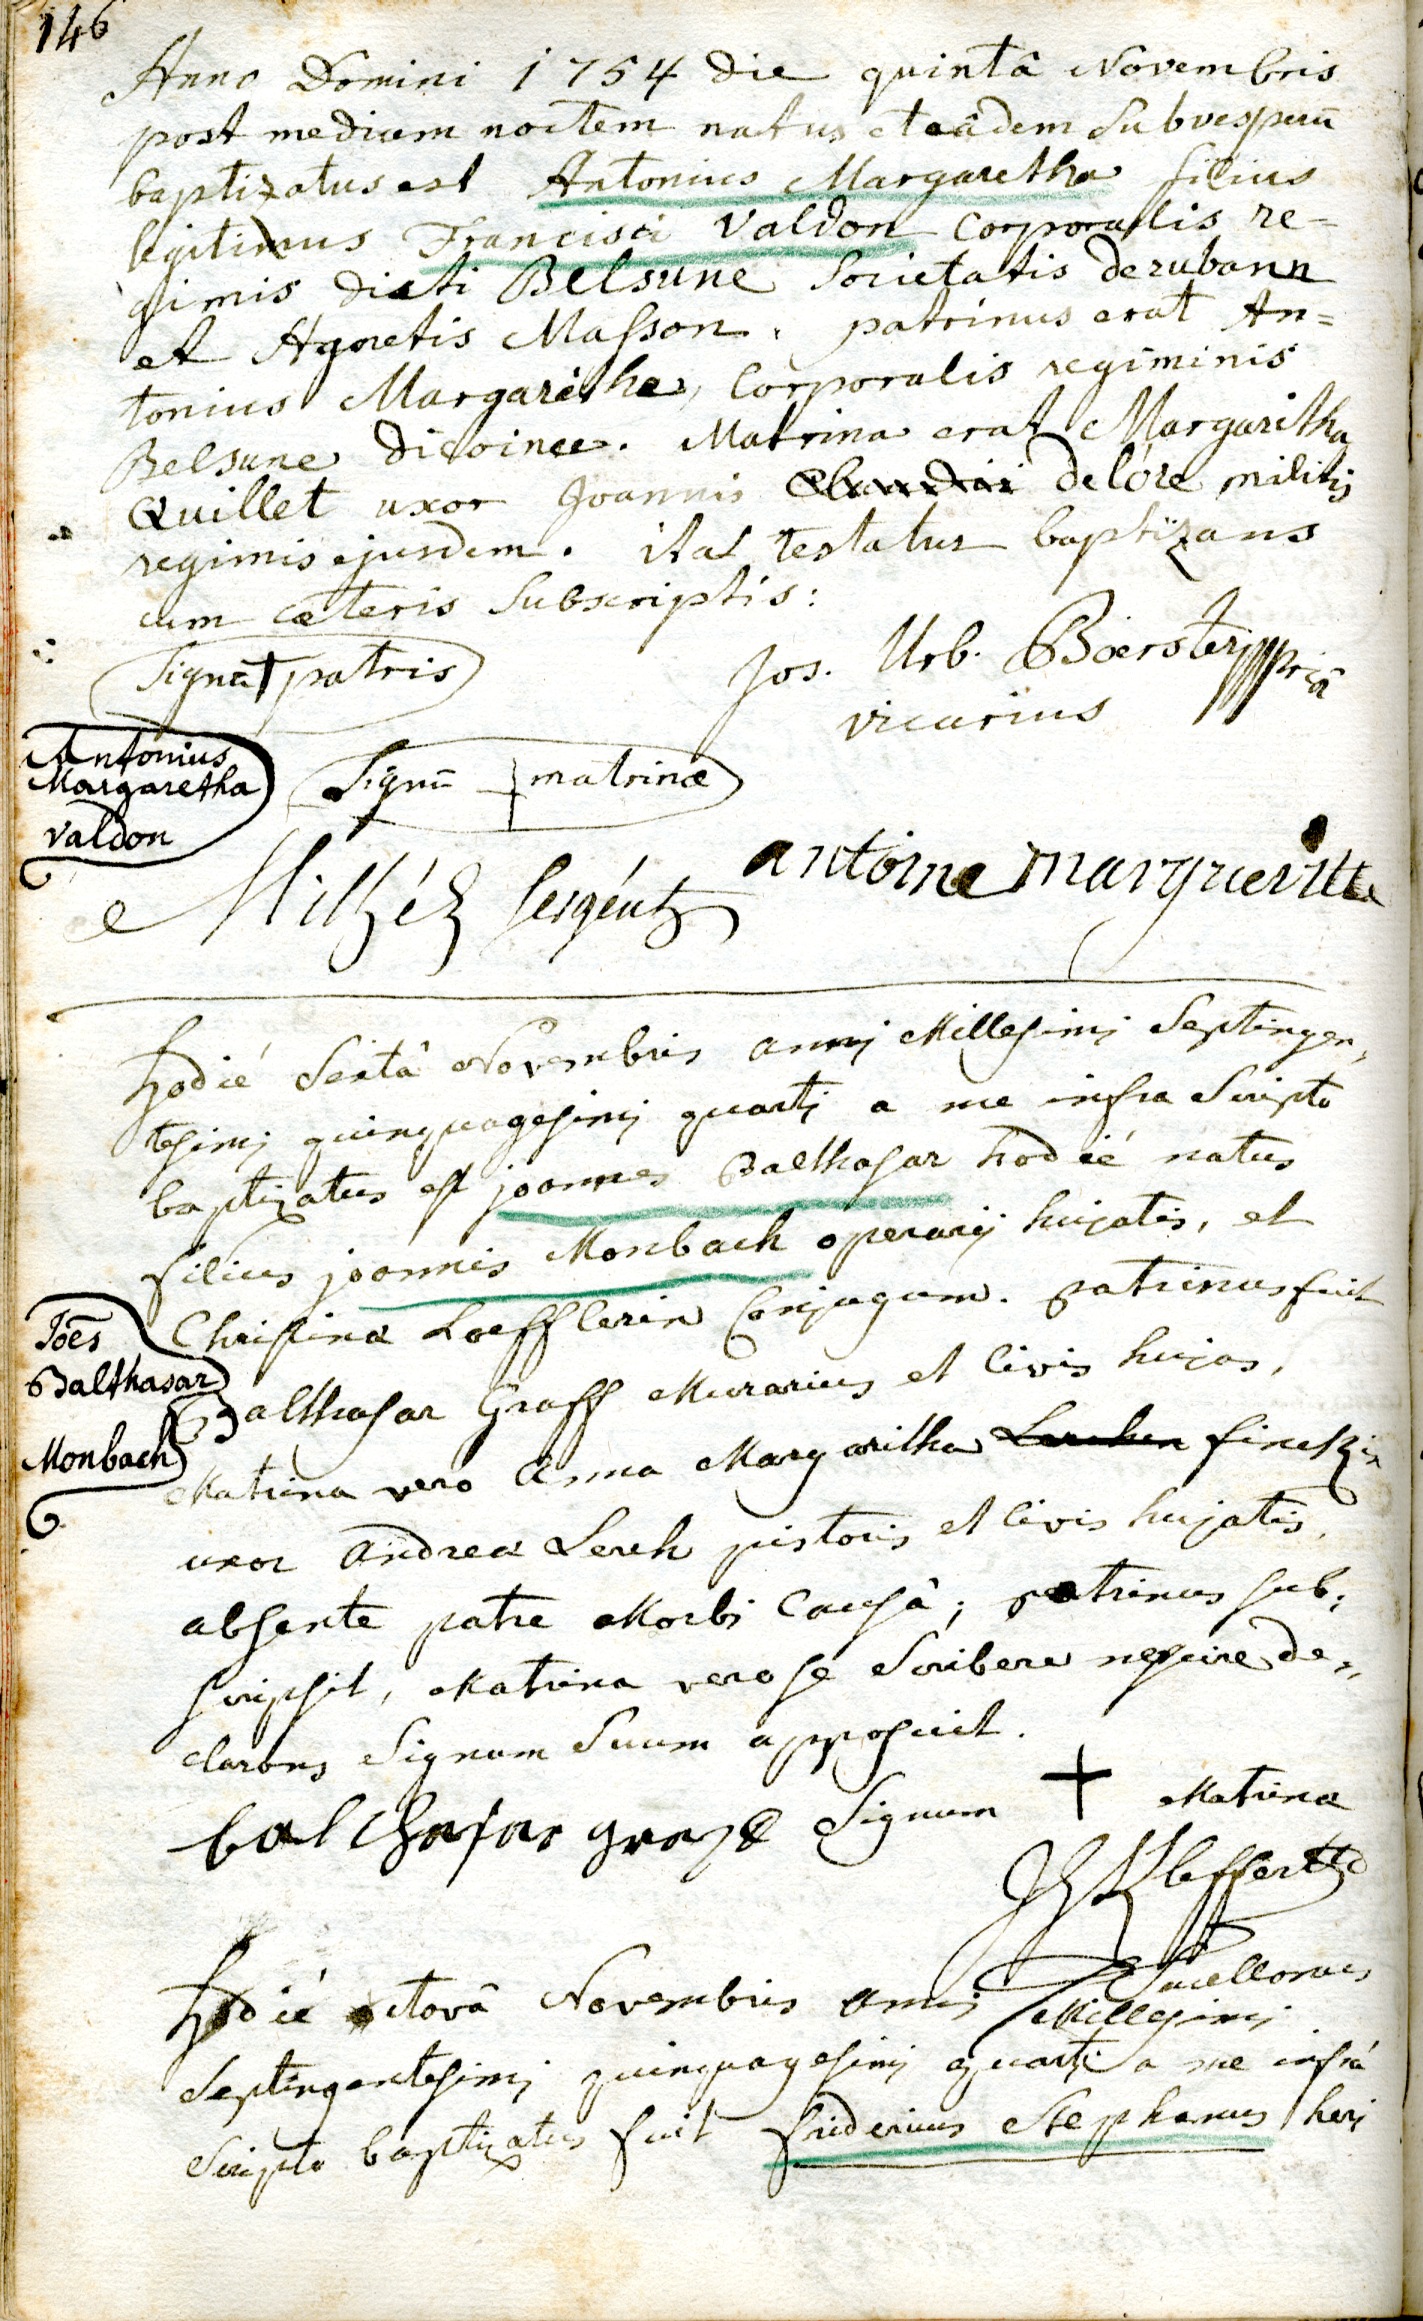 146
Anno Domini 1754 die quintâ Novembris
post mediam noctem natus et eâdem Sub vesperū
baptizatus est Antonius Margaretha filius
legitimus Francisci Valdon Corporalis re=
gimis dicti Belsune Societatis derubann
et Agnetis Masson. patrinus erat An=
tonius Margarethe, Corporalis regiminis
Belsune dicoinee. Matrina erat Margaritha
Quillet uxor Joannis delóre militis
regimis ejusdem. itat testatur baptizans
cum cæteris Subscriptis:
Signū † patris
Jos. Urb. Boerster
vicarius
Antonius
Margaretha
Valdon
Signū † matrinæ
Sergént
antoine margueritte
Hodié Sextâ Novembris anni Millesimi Septingen,
tesimi quinquagesimi quarti a me infra Scripto
baptizatus est joannes Balthasar hodié natus
filius joannis Monbach operarij hujatis, et
Christina Loefflerin Conjugum. patrinus fuit
Joēs
Balthasar
Monbach
Balthasar Graff Murarius et Civis hujas,
Matrina vero Anna Margaritha Lerchen finckin
uxor Andreæ Lerch pistoris et Civis hujatis,
absente patre Morbi Causâ; patrinus sub,
scripsit, Matrina vero se Scribere nescire de,,
clarans Signum Suum apposuit.
balthasar graff Signum + Matrina
Kleffert
Sacellanus
Hodié octovâ Novembris anni Millesimi
Septingentesimi quinquagesimi quarti a me infrá
Scripto baptizatus fuit fridericus Stephanus heri